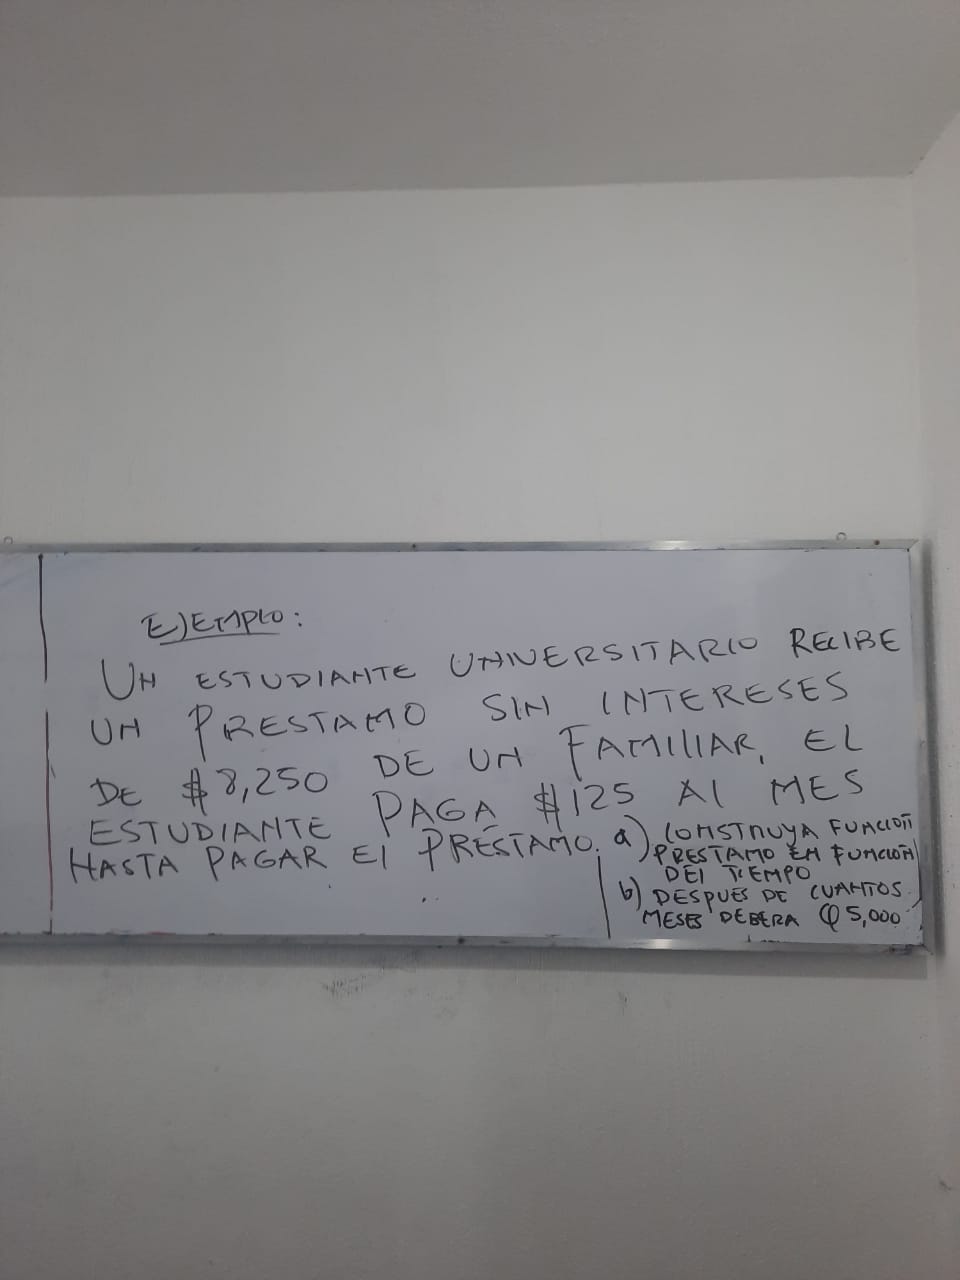 EJEMPLO:
UN ESTUDIANTE UNIVERSITARIO RECIBE
UN PRESTAMO SIN INTERESES
DE $8,250 DE UN FAMILIAR, EL
ESTUDIANTE PAGA $125 Al MES
HASTA PAGAR El PRÉSTAMO.
a) CONSTRUYA FUNCIOÑ
PRESTAMO EN FUNCIOÑ
DEl TIEMPO
b) DESPUES DE CUANTOS
MESES DEBERA ₡5,000